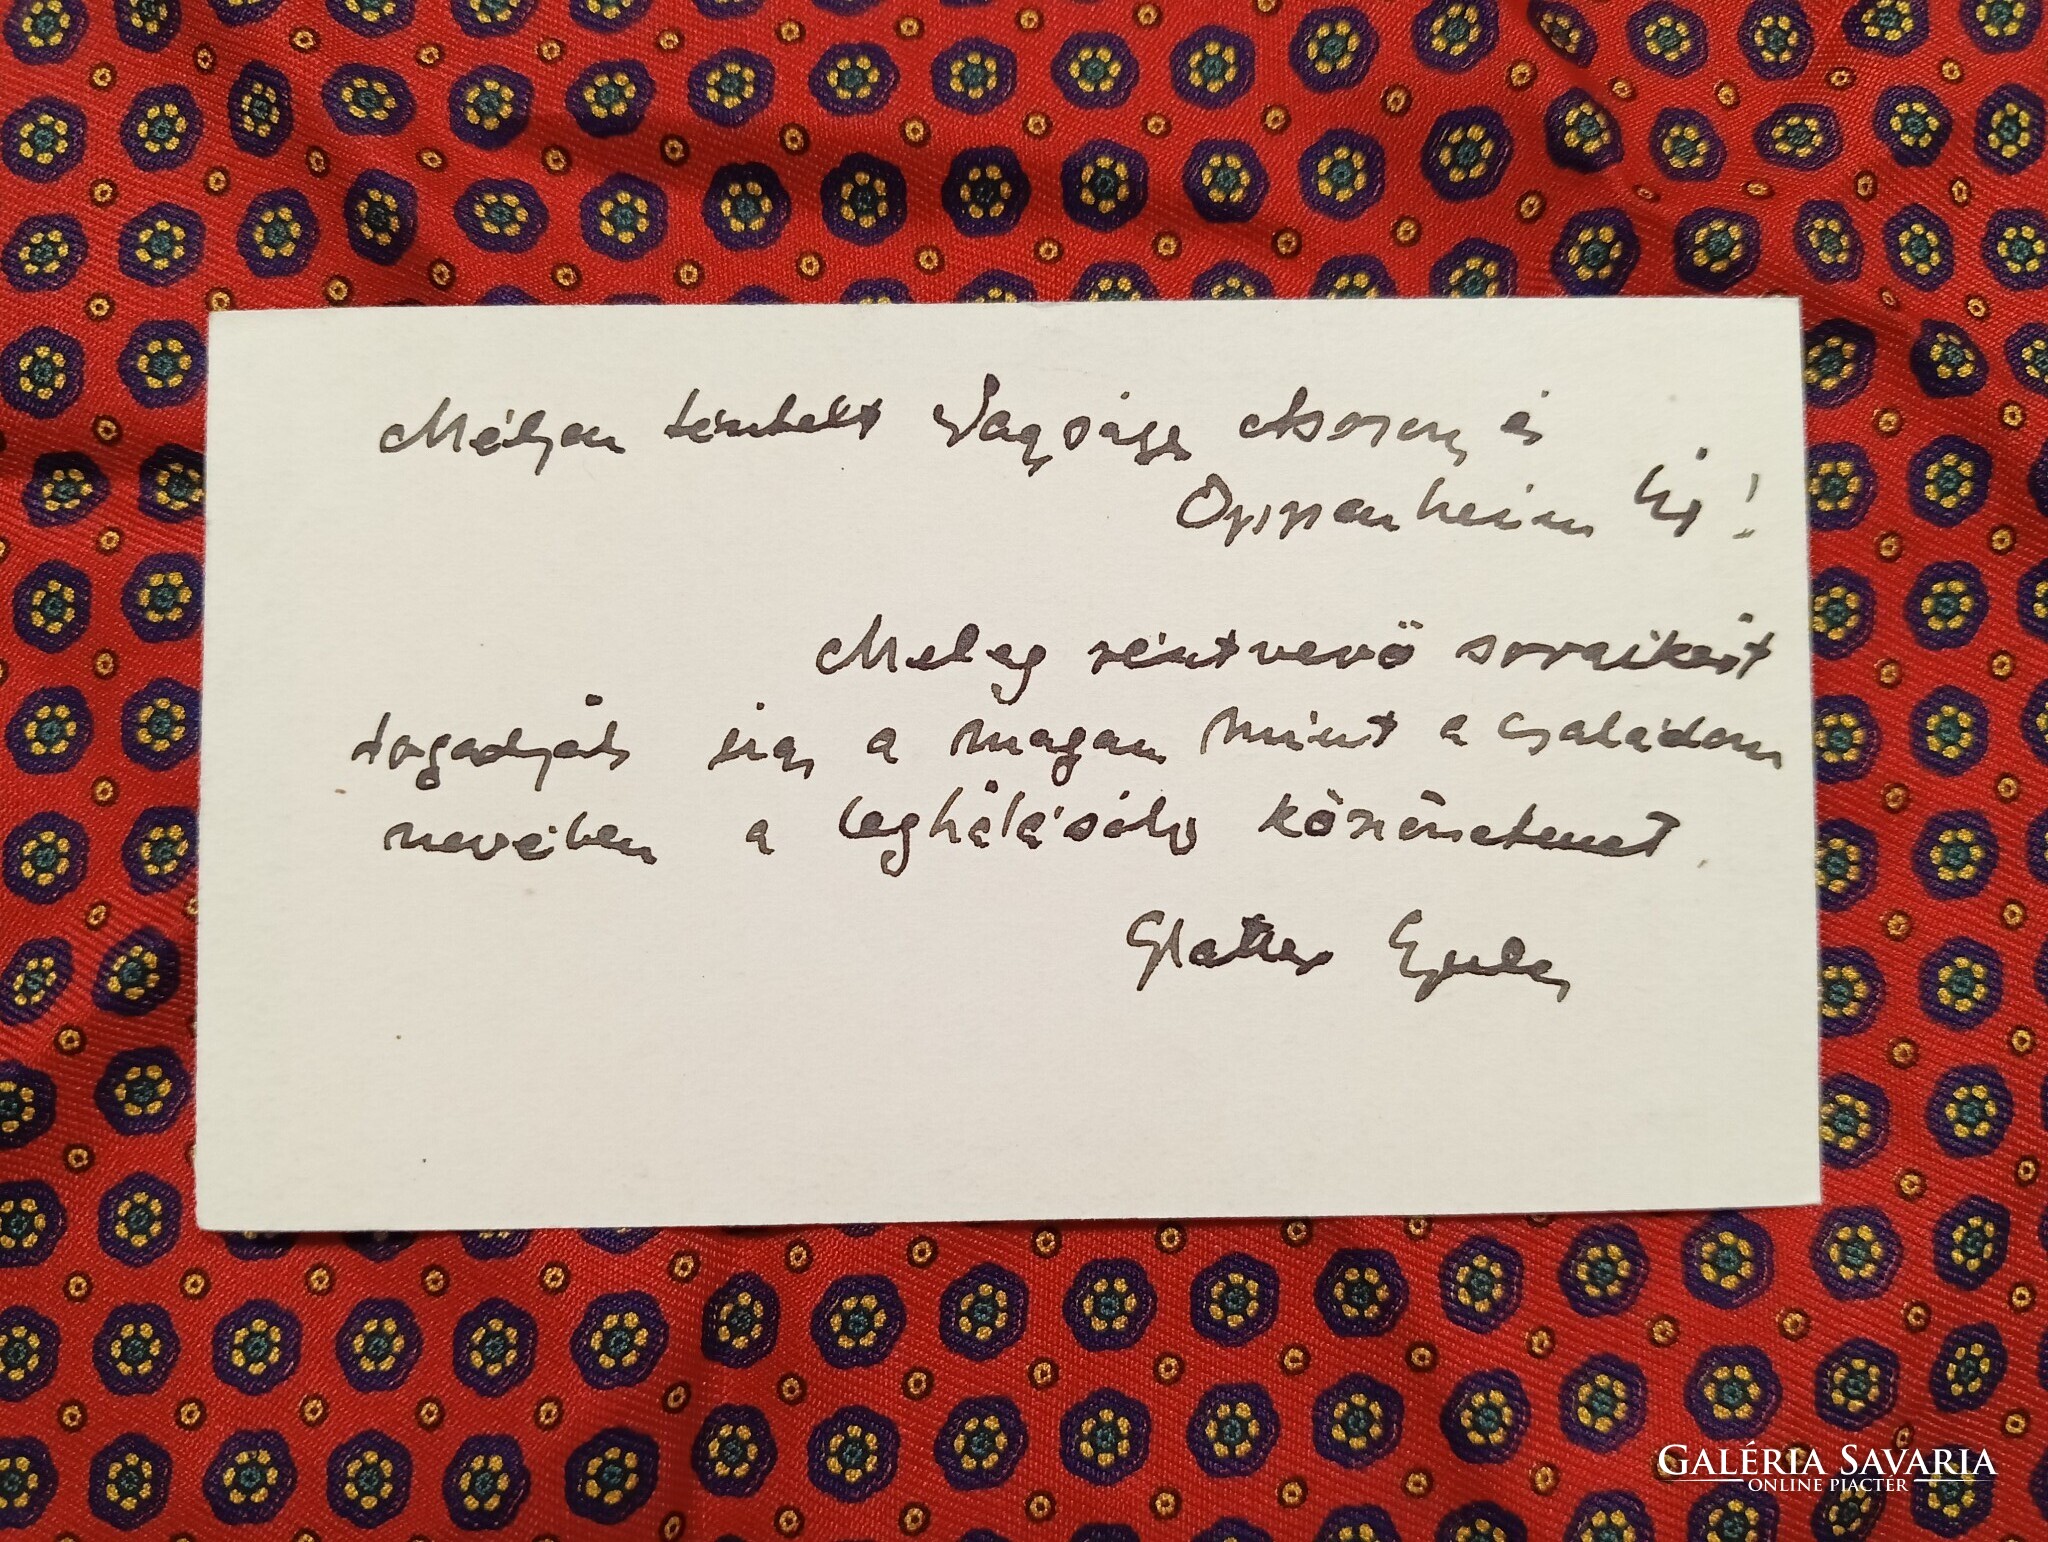 Mélyen tisztelt Nagyságos Asszony és
Oppenheim Úr!
Meleg részvevő soraikért
fogadják úgy a magam mint a családom
nevében a leghálásabb köszönetemet.
Glatter Gyula
GALÉRIA SAVARIA
ONLINE PIACTÉR